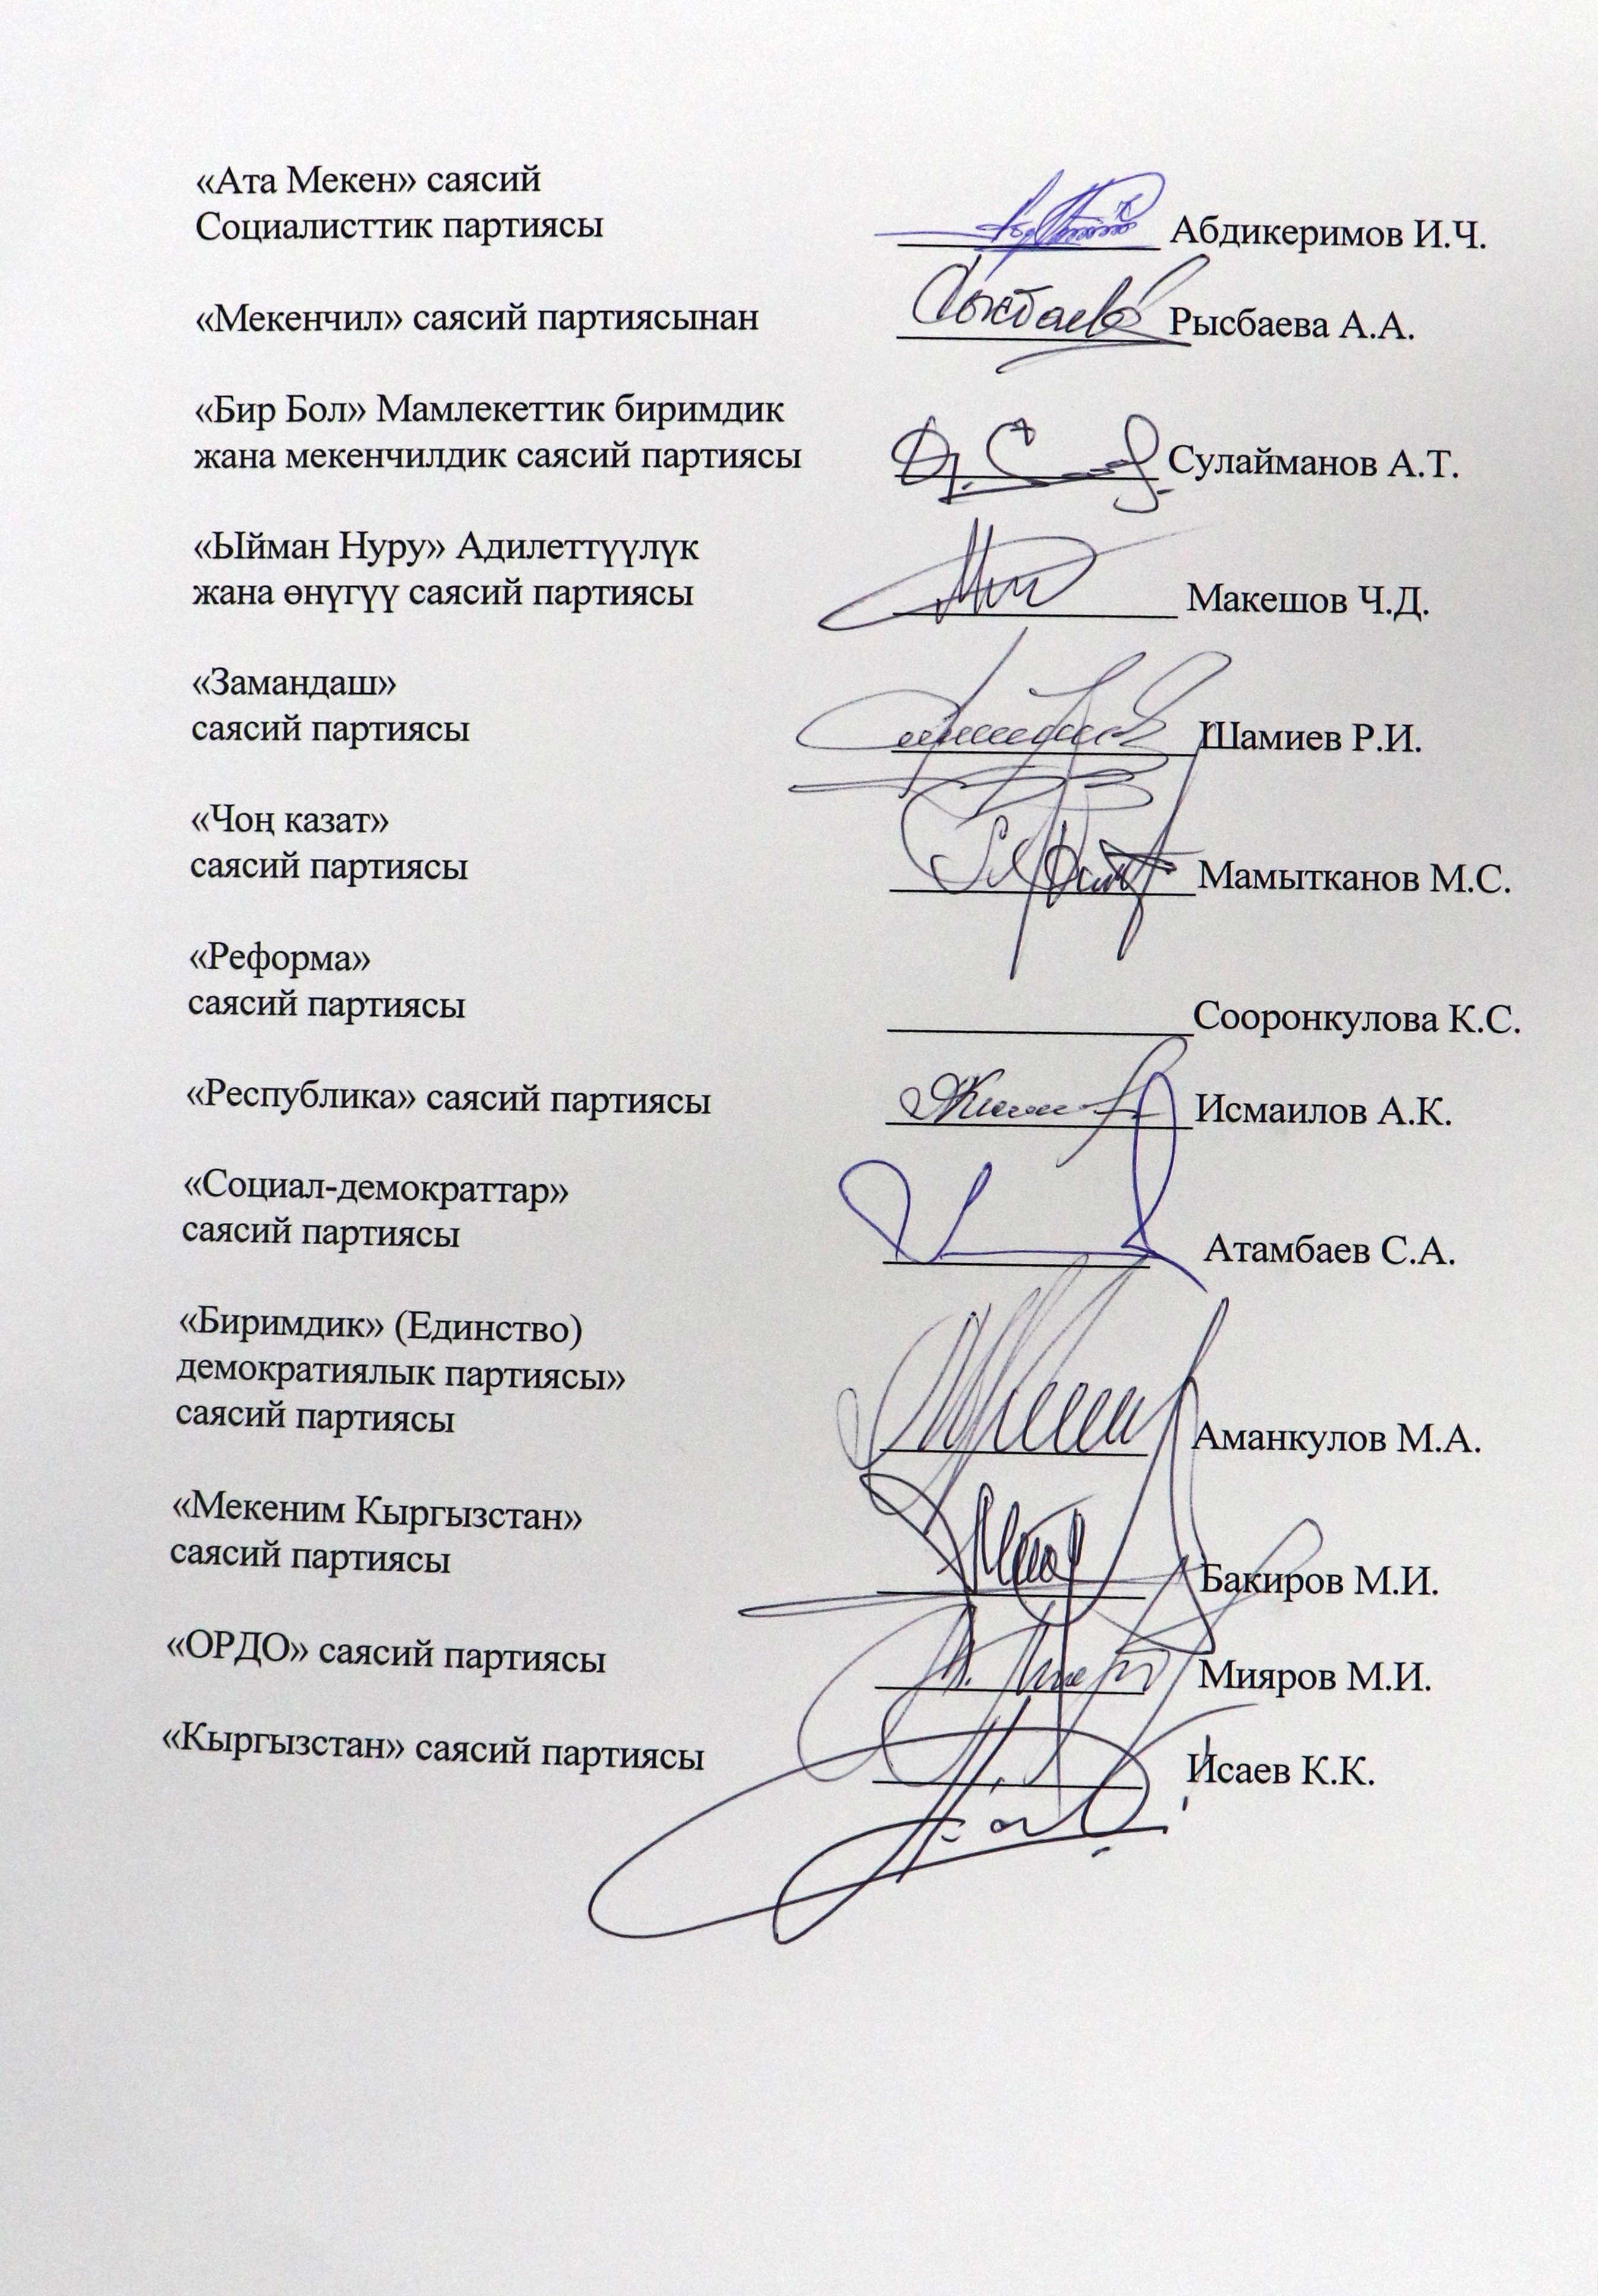 «Ата Мекен» саясий
Социалисттик партиясы Абдикеримов И.Ч.
«Мекенчил» саясий партиясынан Рысбаева А.А.
«Бир Бол» Мамлекеттик биримдик
жана мекенчилдик саясий партиясы Сулайманов А.Т.
«Ыйман Нуру» Адилеттүүлүк
жана өнүгүү саясий партиясы Макешов Ч.Д.
«Замандаш»
саясий партиясы Шамиев Р.И.
«Чоң казат»
саясий партиясы Мамытканов М.С.
«Реформа»
саясий партиясы Сооронкулова К.С.
«Республика» саясий партиясы Исмаилов А.К.
«Социал-демократтар»
саясий партиясы Атамбаев С.А.
«Биримдик» (Единство)
демократиялык партиясы»
саясий партиясы Аманкулов М.А.
«Мекеним Кыргызстан»
саясий партиясы Бакиров М.И.
«ОРДО» саясий партиясы Мияров М.И.
«Кыргызстан» саясий партиясы Исаев К.К.